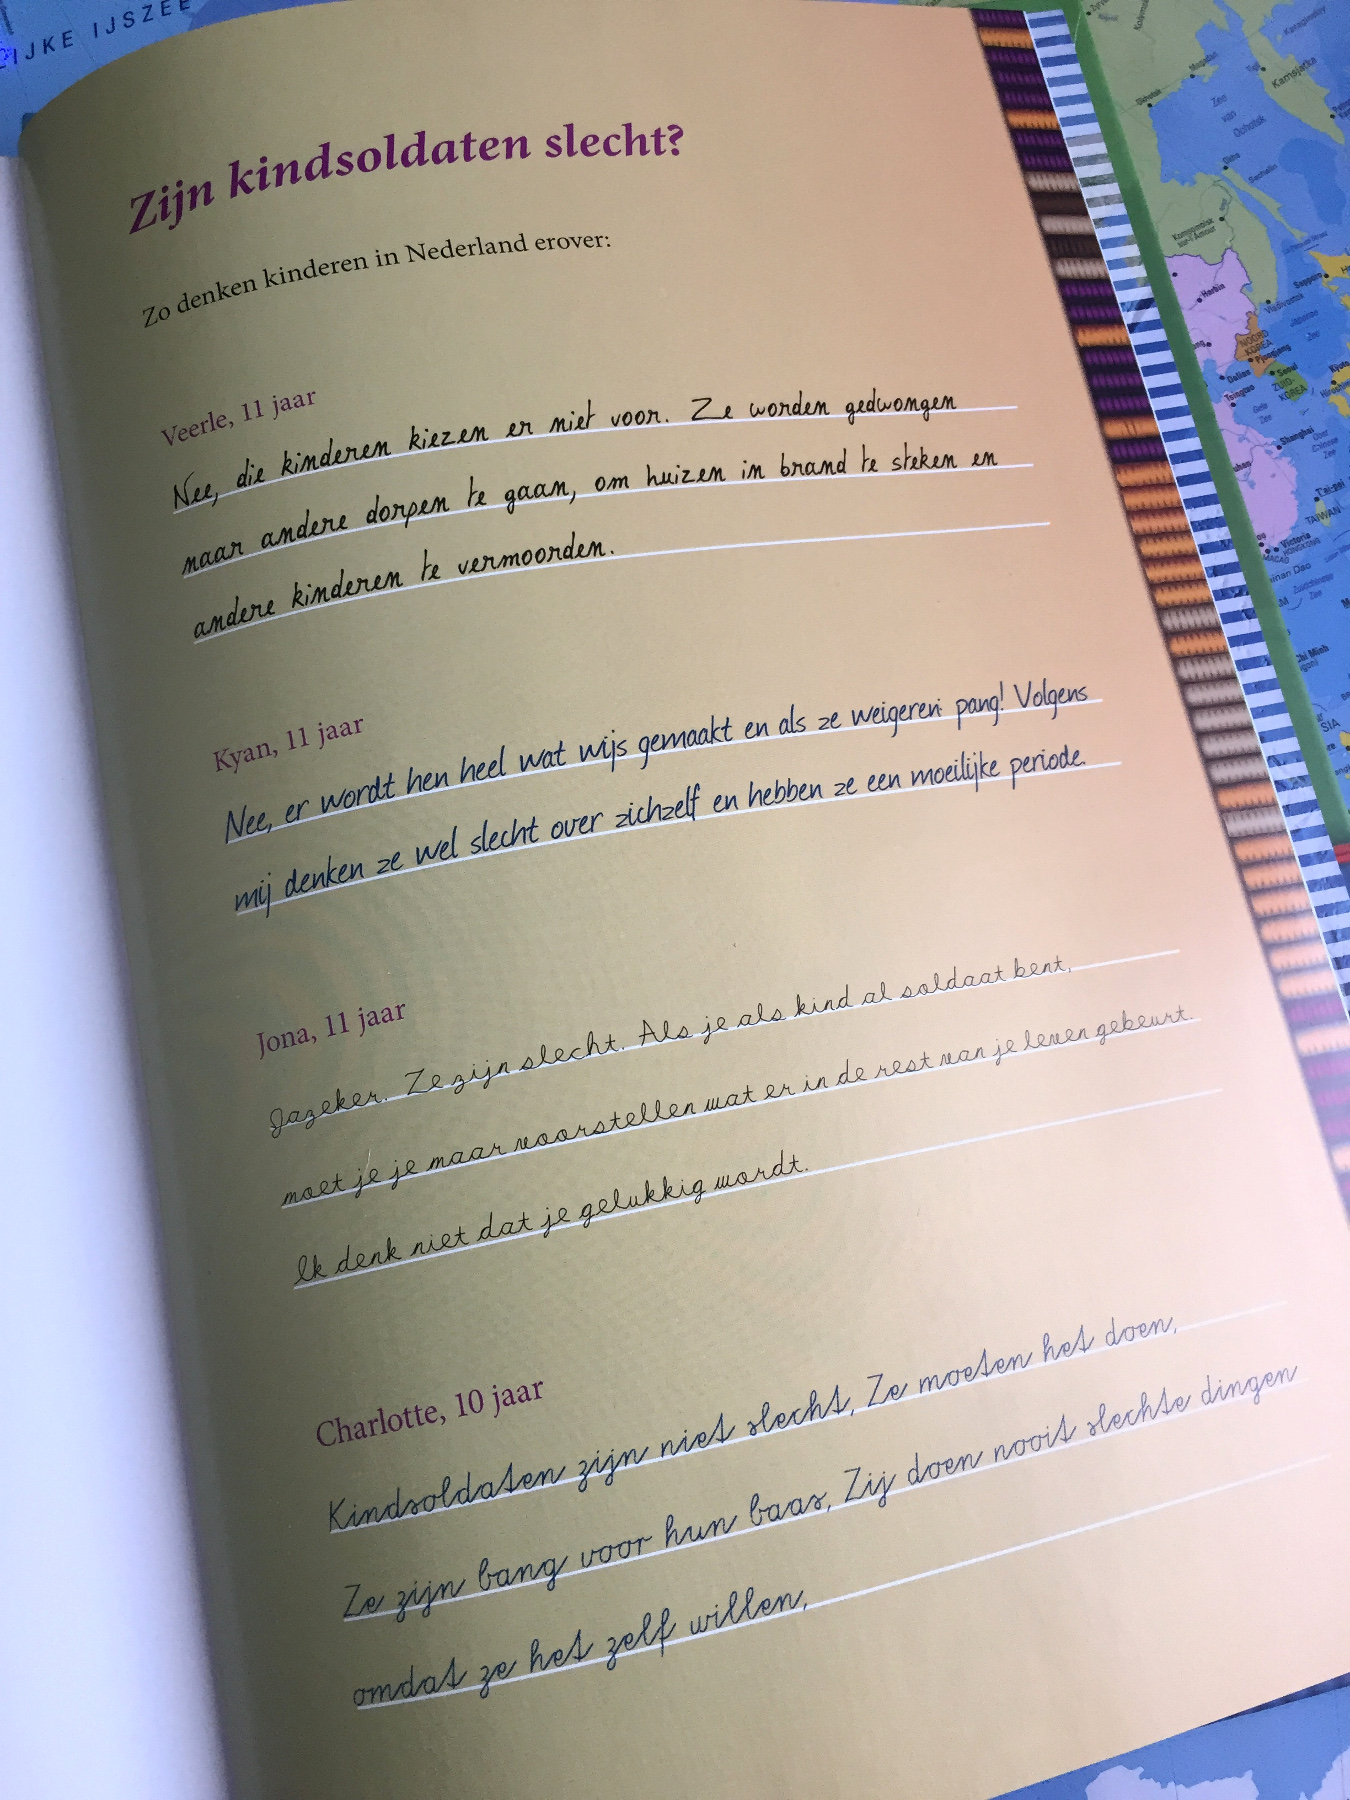 IJKE IJSZEE
Zijn kindsoldaten slecht?
Zo denken kinderen in Nederland erover:
Veerle, 11 jaar
Nee, die kinderen kiezen er niet voor. Ze worden gedwongen
naar andere dorpen te gaan, om huizen in brand te steken en
andere kinderen te vermoorden.
Kyan, 11 jaar
Nee, er wordt hen heel wat wijs gemaakt en als ze weigeren: pang! Volgens
mij denken ze wel slecht over zichzelf en hebben ze een moeilijke periode.
Jona, 11 jaar
Jazeker. Ze zijn slecht. Als je als kind al soldaat bent,
moet je je maar voorstellen wat er in de rest van je leven gebeurt.
Ik denk niet dat je gelukkig wordt.
Charlotte, 10 jaar
Kindsoldaten zijn niet slecht. Ze moeten het doen.
Ze zijn bang voor hun baas. Zij doen nooit slechte dingen
omdat ze het zelf willen.
Kamsjatka
Zee
van
Ochotsk
Harbin
NOORD
KOREA
Pyongyang
Seoul
ZUID-
KOREA
Shanghai
TAIWAN
Victoria
HONGKONG